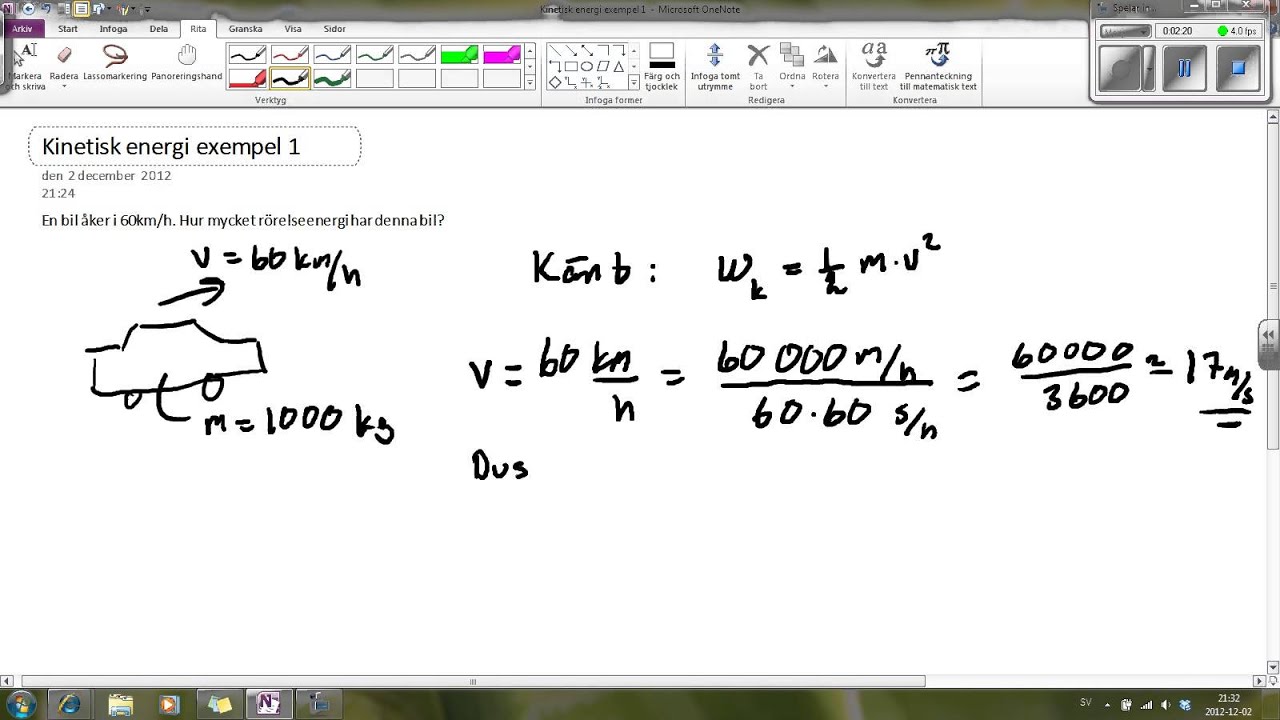 Kinetisk energi exempel 1 - Microsoft OneNote
Spelar in...
Arkiv Start Infoga Dela Rita Granska Visa Sidor
0:02:20 4.0 fps
Markera och skriva
Radera
Lassomarkering
Panoreringshand
Färg och tjocklek
Infoga tomt utrymme
Ta bort
Ordna
Rotera
Konvertera till text
Pennanteckning till matematisk text
Verktyg
Infoga former
Redigera
Konvertera
Kinetisk energi exempel 1
den 2 december 2012
21:24
En bil åker i 60km/h. Hur mycket rörelseenergi har denna bil?
v = 60 km/h
Känt : Wk = 1/2 m·v²
v = 60 km/h = 60 000 m/h / 60·60 s/h = 60000/3600 = 17 m/s
m = 1000 kg
Dvs
SV
21:32
2012-12-02